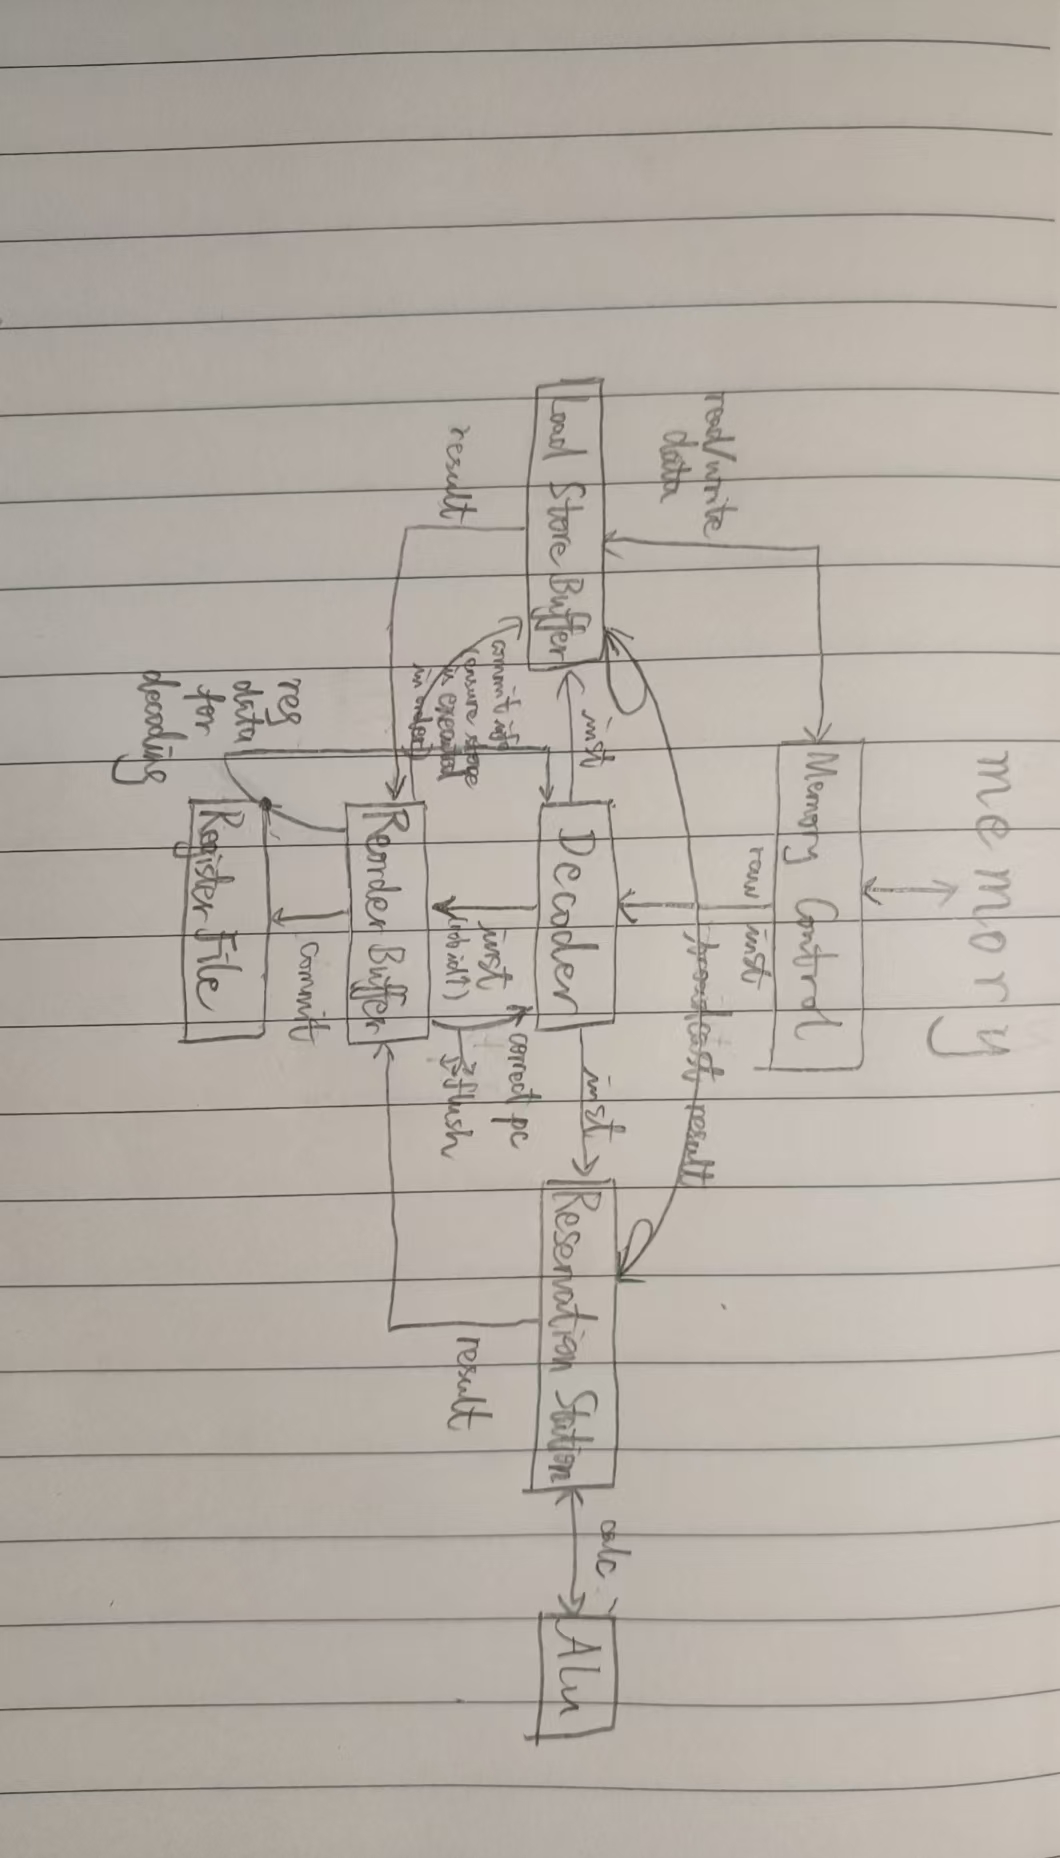 memory
Memory Control
raw inst
read/write
data
broadcast result
inst
inst
calc
Load Store Buffer
Decoder
Reservation Station
ALU
commit info
(ensure store
is executed
in order)
correct pc
inst
(rob id↑)
flush
result
result
Reorder Buffer
commit
reg
data
for
decoding
Register File